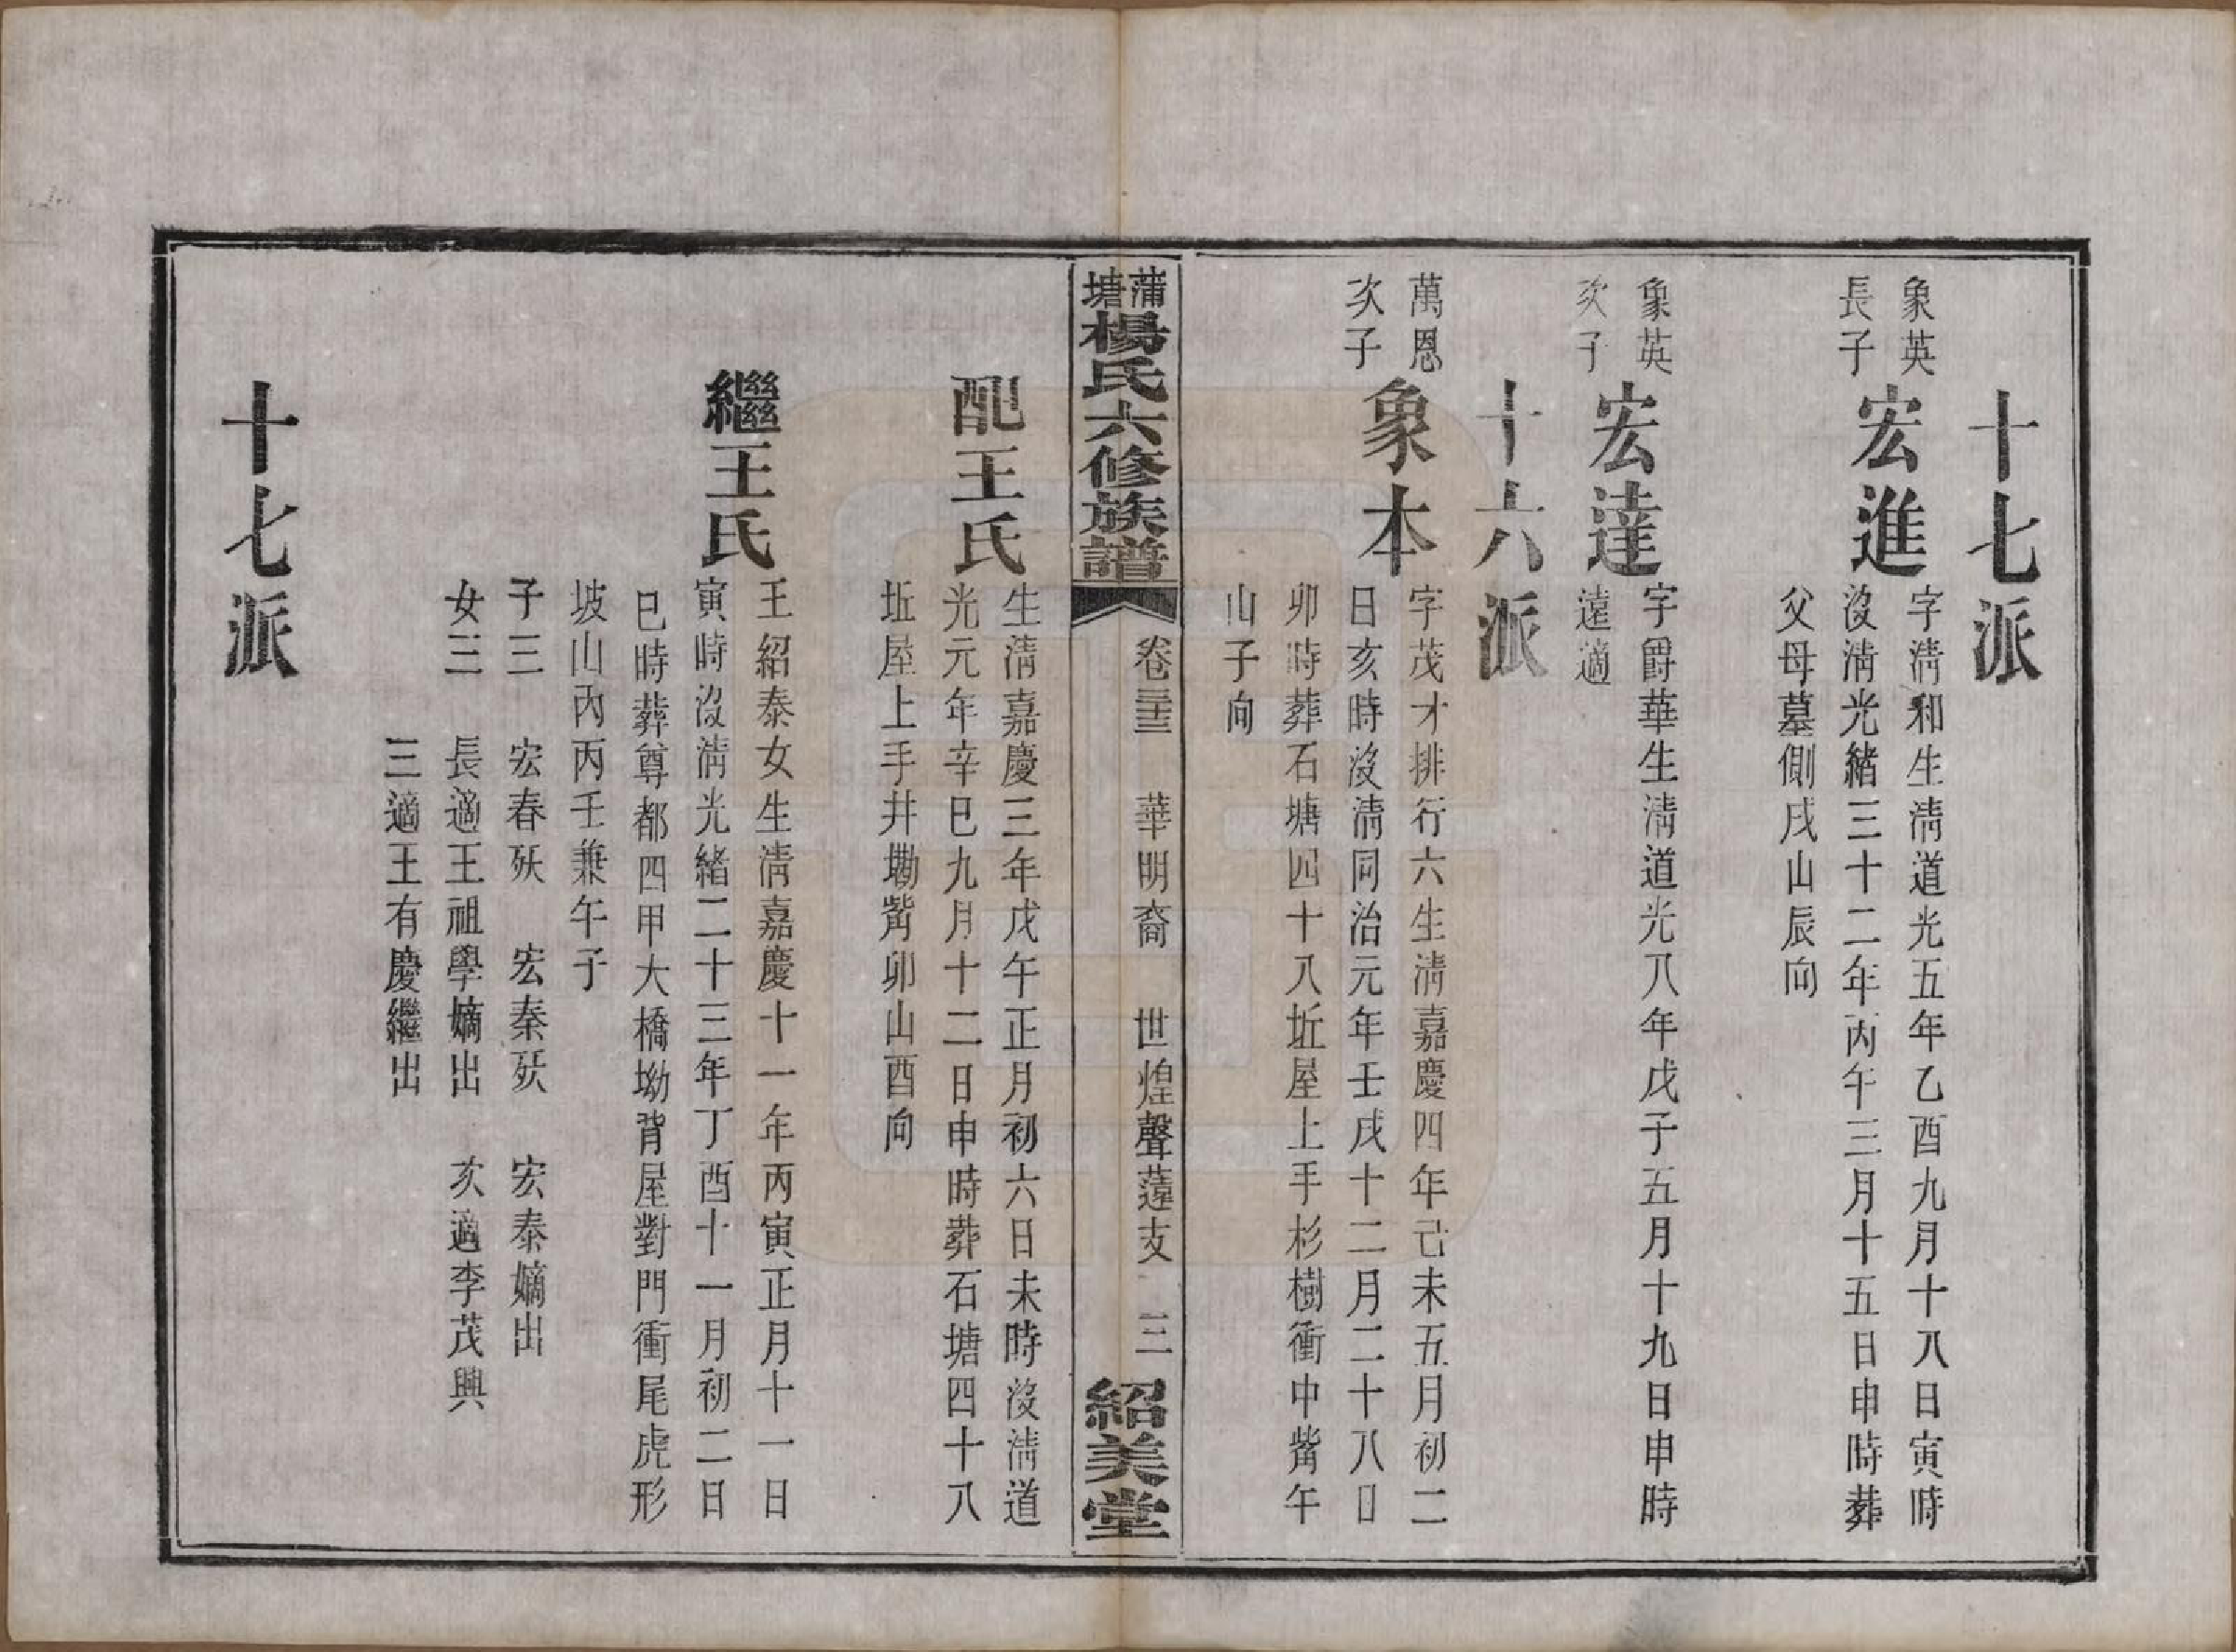 十七派
象英
長子
宏進
字淸和生淸道光五年乙酉九月十八日寅時
沒淸光緖三十二年丙午三月十五日申時葬
父母墓側戌山辰向
象英
次子
宏達
字爵華生淸道光八年戊子五月十九日申時
遠適
十六派
萬恩
次子
象本
字茂才排行六生淸嘉慶四年己未五月初二
日亥時沒淸同治元年壬戌十二月二十八日
卯時葬石塘四十八坵屋上手杉樹衝中觜午
山子向
蒲塘楊氏六修族譜
卷三十三 華明裔 世煌聲薘支 三
紹美堂
配王氏
生淸嘉慶三年戊午正月初六日未時沒淸道
光元年辛巳九月十二日申時葬石塘四十八
坵屋上手井塝觜卯山酉向
繼王氏
王紹泰女生淸嘉慶十一年丙寅正月十一日
寅時沒淸光緖二十三年丁酉十一月初二日
巳時葬尊都四甲大橋坳背屋對門衝尾虎形
坡山內丙壬兼午子
子三 宏春殀 宏秦殀 宏泰嫡出
女三 長適王祖學嫡出 次適李茂興
三適王有慶繼出
十七派